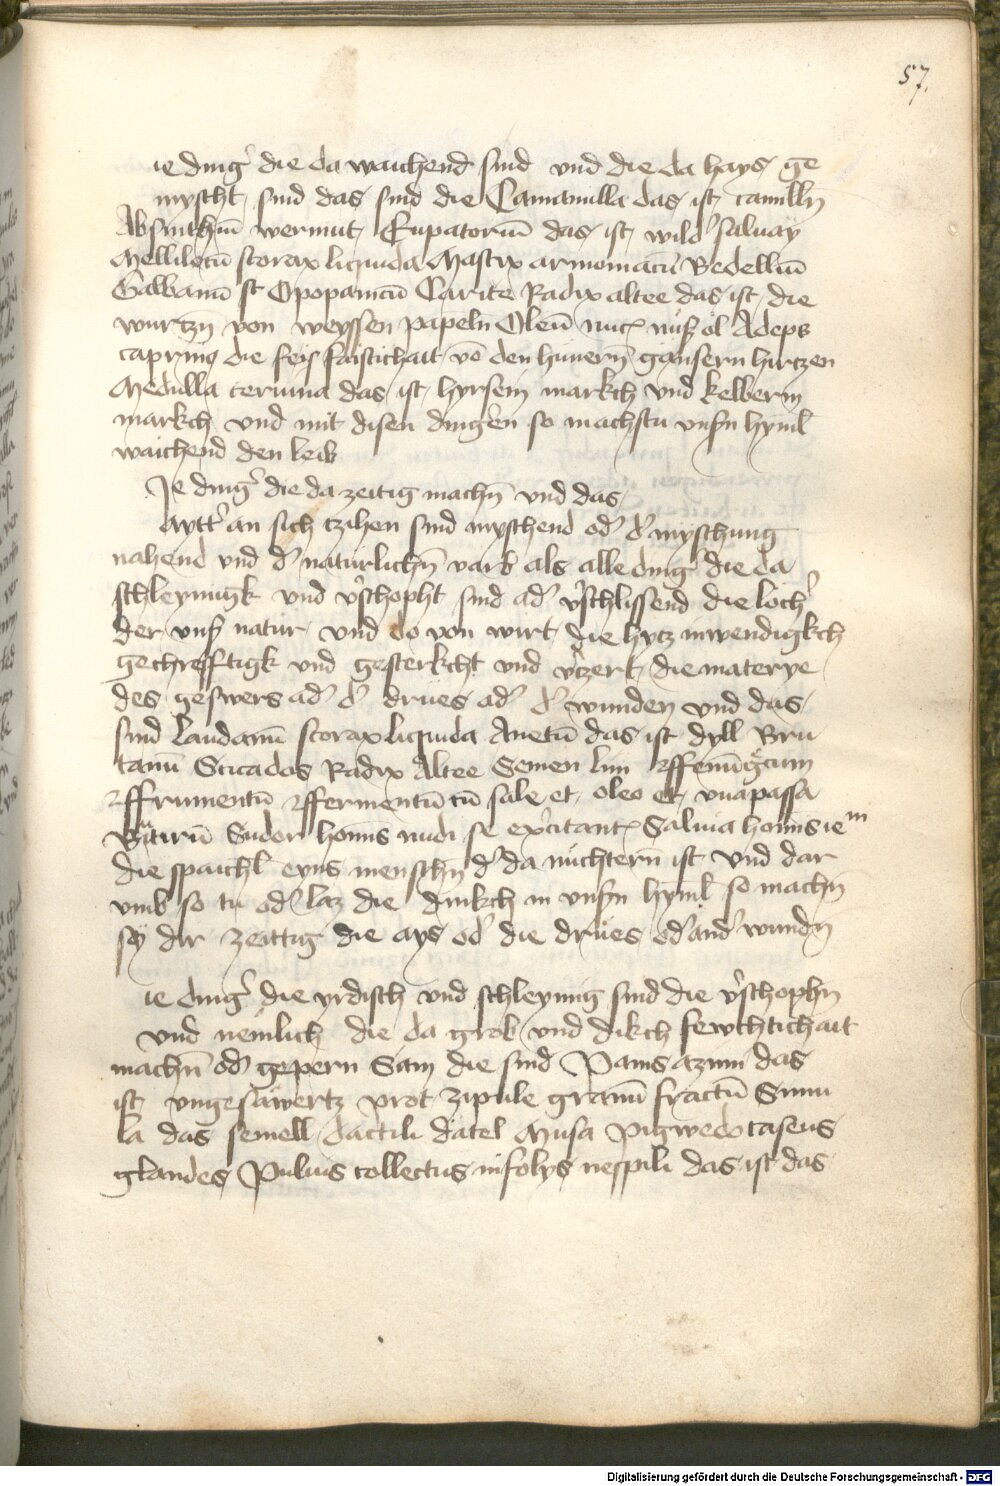 57.
ie ding̉ die da waichend sind vnd die da hays ge
myscht sind das sind die Camamilla das ist camilln̄
Absinthiū wermut Eupatoriū das ist wild̉ saluay
Mellilotū storax liquida Mastix armoniacū Bedelliū
Galbanū st Opopanicū Carite Radix altee das ist die
wurtzn̄ von weyssen papeln Oleū nuc̄ nuß öl Adeps
caprinꝯ die feis faistichait vō den hünern̄ gänsern hirtzen
Medulla ceruina das ist hyrsein markch vnd kelberin
markch vnd mit disen dingern so machstu vnsn̄ hyml
waichend den leib
Ie ding̉ die da zeitig machn̄ vnd das
aytt̉ an sich tzihen sind myschend od̉ d̉ myschung
nahend vnd d̉ natürlichn̄ varb als alle ding die da
schleymigk vnd v̉schopht sind ad̉ v̉schlissend die löch̉
der vnß natur vnd do von wirt die hytz inwendigkch
gechrefftigk vnd gesterkcht vnd v̉tzert die materye
des geswers ad̉ d̉ drües ad̉ d̉ wunden vnd das
sind laudanū storax liquida Anetū das ist dyll Bru
tanū Sticados Radix Altee Semen lini ffenūgcum
ffrumentū ffermentū cū sale et oleo et vuapassa
Butirū Sudor homīs nudi se exc̉itant Saliua homīs ieᵐ
die spaichl eyns menschn̄ d̉ da nüchtern̄ ist vnd dar
vmb so tu od̉ laz die dinkch in vnsn̄ hyml so machn̄
sy dir zeittig die ays od̉ die drües od̉ and̉ wundn̄
ie ding̉ die yrdisch vnd schleymig sind die v̉schophn̄
vnd nemlich die da grob vnd dikch fewchtichait
machn̄ od̉ gepern Sam die sind Panis azimi das
ist vngesäwertz prot zipule granū fractū Simi
la das semell dactili dätel Musa caseus
glandes Puluis collectus in folys nespili das ist das
Digitalisierung gefördert durch die Deutsche Forschungsgemeinschaft - DFG